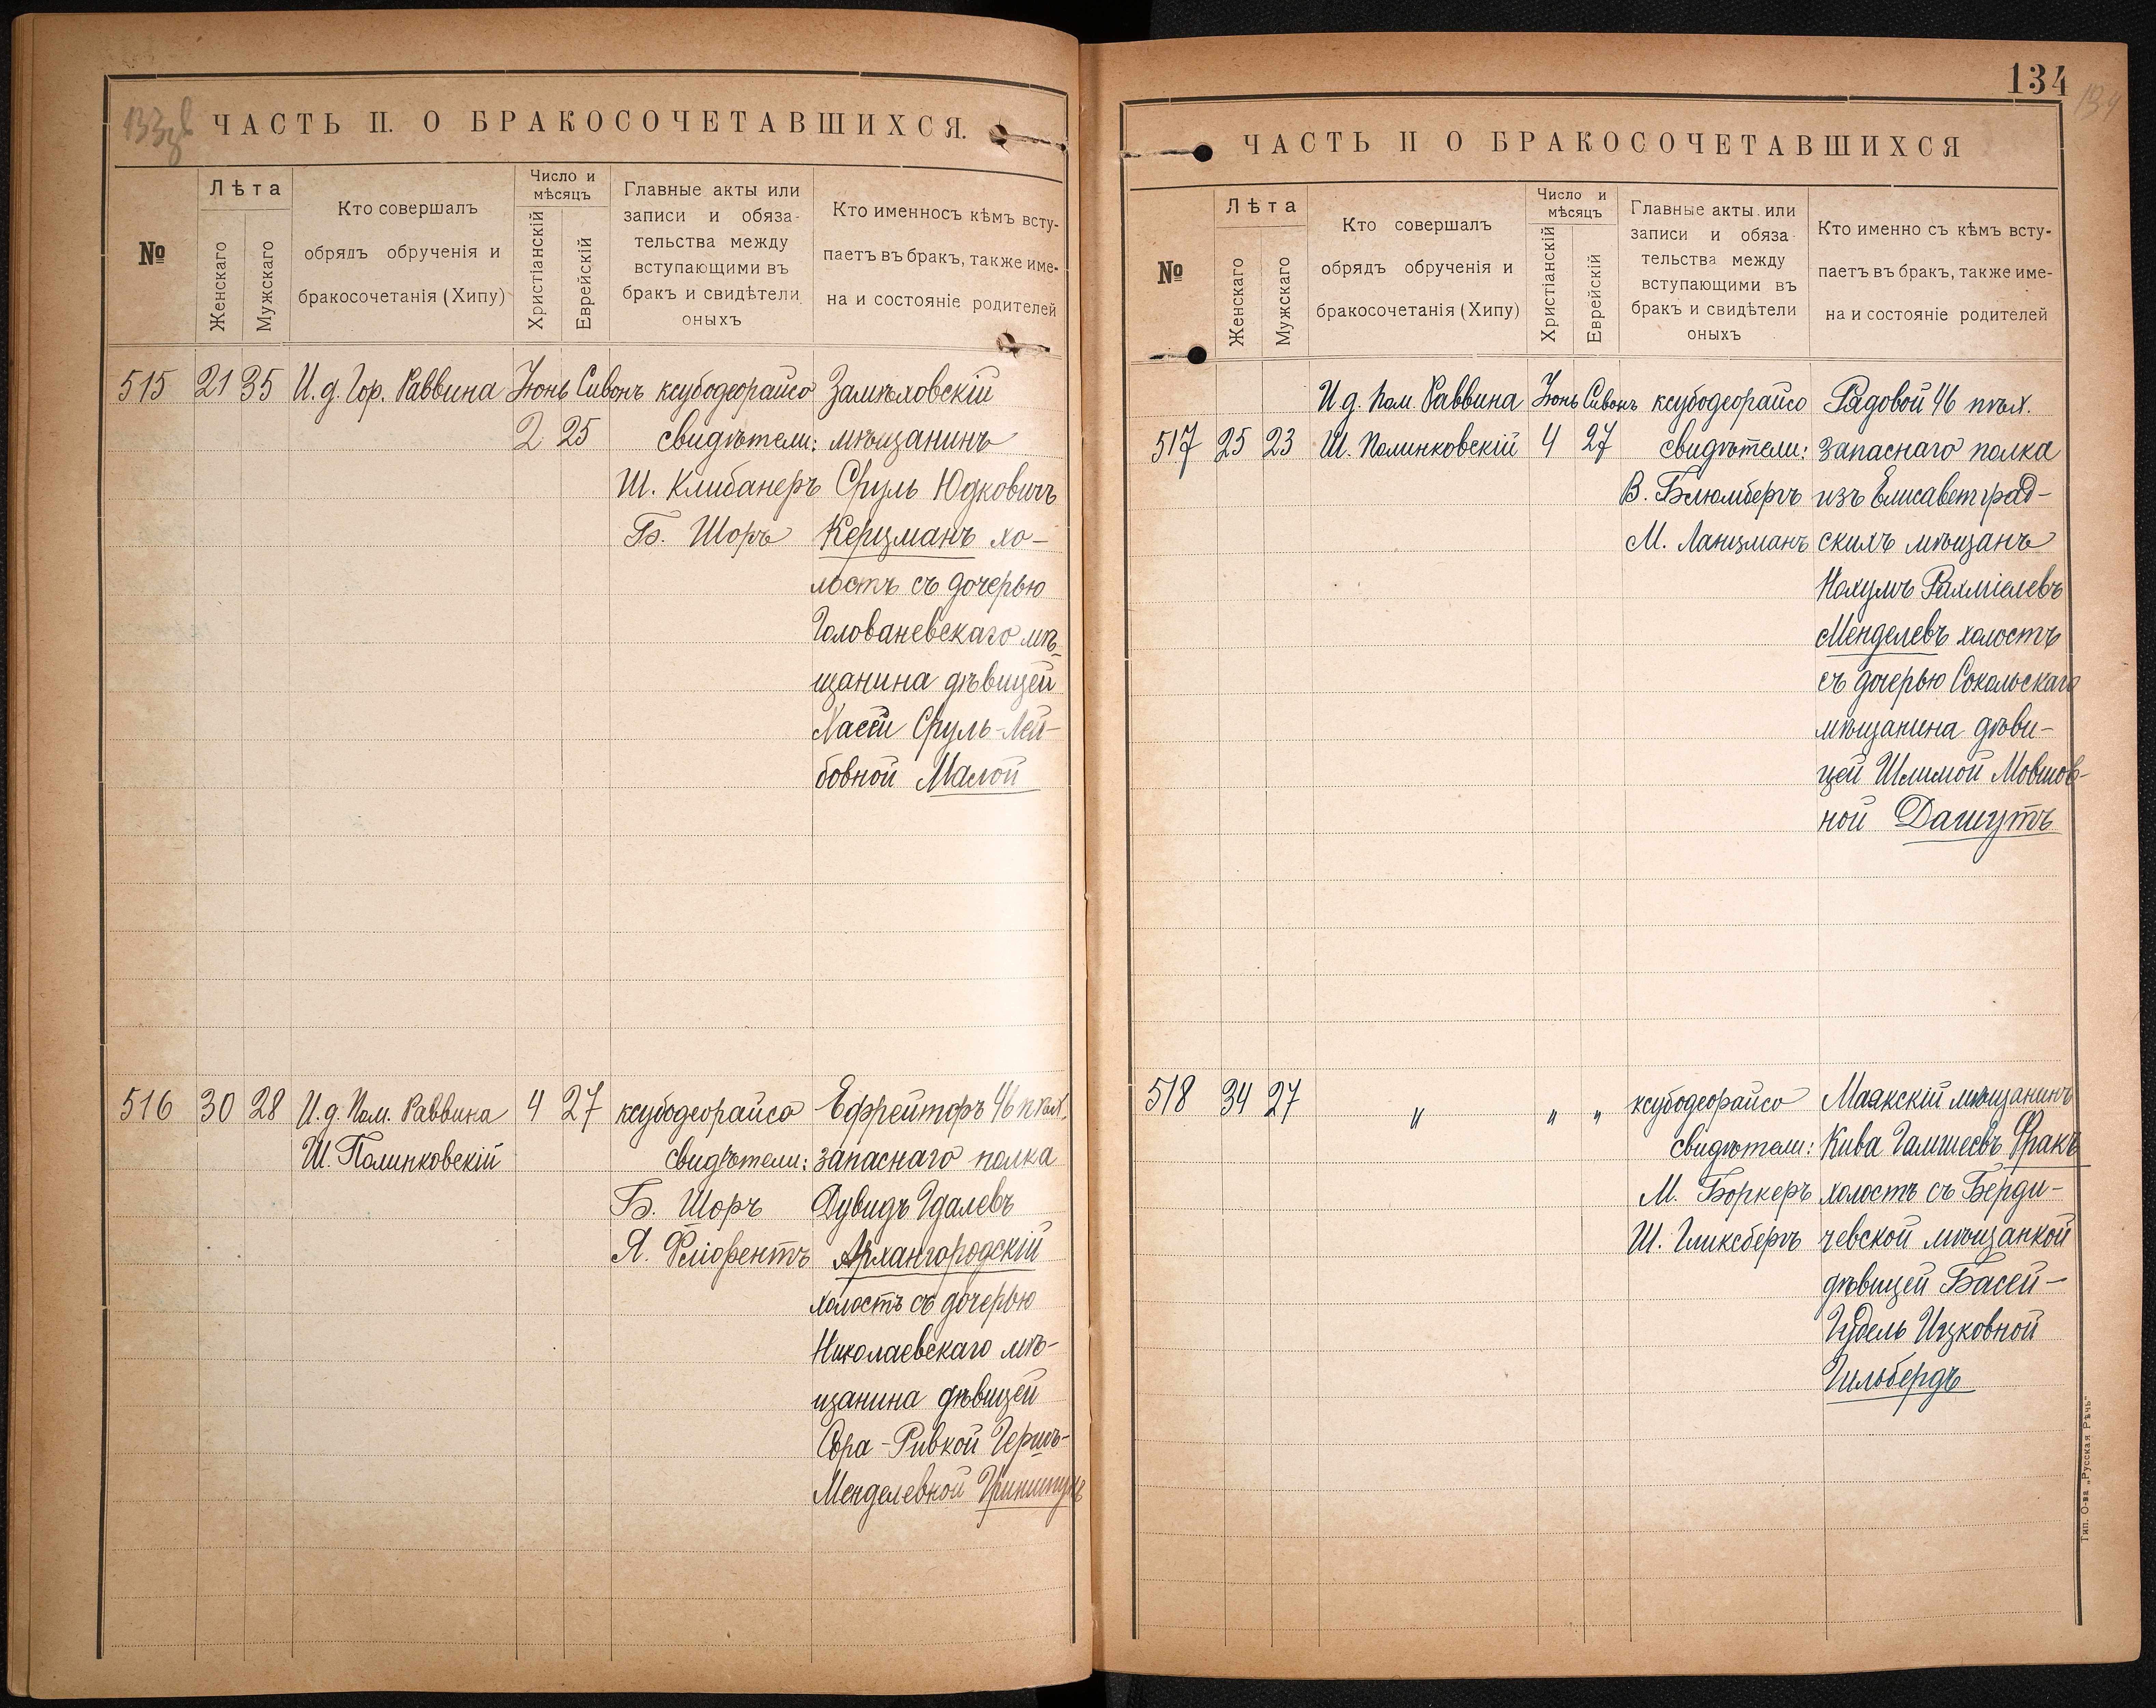 133об
ЧАСТЬ II. О БРАКОСОЧЕТАВШИХСЯ.
№
Лѣта
Женскаго
Мужскаго
Кто совершалъ
обрядъ обрученія и
бракосочетанія (Хипу)
Число и
мѣсяцъ
Христіанскій
Еврейскій
Главные акты или
записи и обяза-
тельства между
вступающими въ
бракъ и свидѣтели
оныхъ
Кто именносъ кѣмъ всту-
паетъ въ бракъ, также име-
на и состояніе родителей
515 21 35 И. д. Гор. Раввина Іюнь Сивонъ ксубодеорайсо
2 25 свидѣтели:
Ш. Клибанеръ
Б. Шоръ
Замѣховскій
мѣщанинъ
Сруль Юдковичъ
Керцманъ хо-
лостъ съ дочерью
Голованевскаго мѣ-
щанина дѣвицей
Хасей Сруль-Лей-
бовной Малой
516 30 28 И. д. Пом. Раввина 4 27 ксубодеорайсо
Ш. Полинковскій свидѣтели:
Б. Шоръ
Ефрейторъ 46 п
запаснаго полка
Дувидъ Идалевъ
Архангородскій
холостъ съ дочерью
Николаевскаго мѣ-
щанина дѣвицей
Сора-Ривкой Гершъ-
Менделевной
134
134
ЧАСТЬ II О БРАКОСОЧЕТАВШИХСЯ
№
Лѣта
Женскаго
Мужскаго
Кто совершалъ
обрядъ обрученія и
бракосочетанія (Хипу)
Число и
мѣсяцъ
Христіанскій
Еврейскій
Главные акты или
записи и обяза
тельства между
вступающими въ
бракъ и свидѣтели
оныхъ
Кто именно съ кѣмъ всту-
паетъ въ бракъ, также име-
на и состояніе родителей
И. д. Пом. Раввина Іюнь Сивонъ ксубодеорайсо
517 25 23 Ш. Полинковскій 4 27 свидѣтели:
В. Блюмбергъ
М. Ланцманъ
Рядовой 46 пѣх.
запаснаго полка
изъ Елисаветград-
скихъ мѣщанъ
Нахумъ Рахміелевъ
Менделевъ холостъ
съ дочерью Сокольскаго
мѣщанина дѣви-
цей Шлимой Мовшов-
ной Дашутъ
518 34 27 " " " ксубодеорайсо
свидѣтели:
М. Боркеръ
Ш. Гликсбергъ
Маякскій мѣщанинъ
Кива Гамшеевъ Фракъ
холостъ съ Берди-
чевской мѣщанкой
дѣвицей Басей-
Гудель Ицковной
Гильбердъ
Тип. О-ва „Русская Рѣчь"